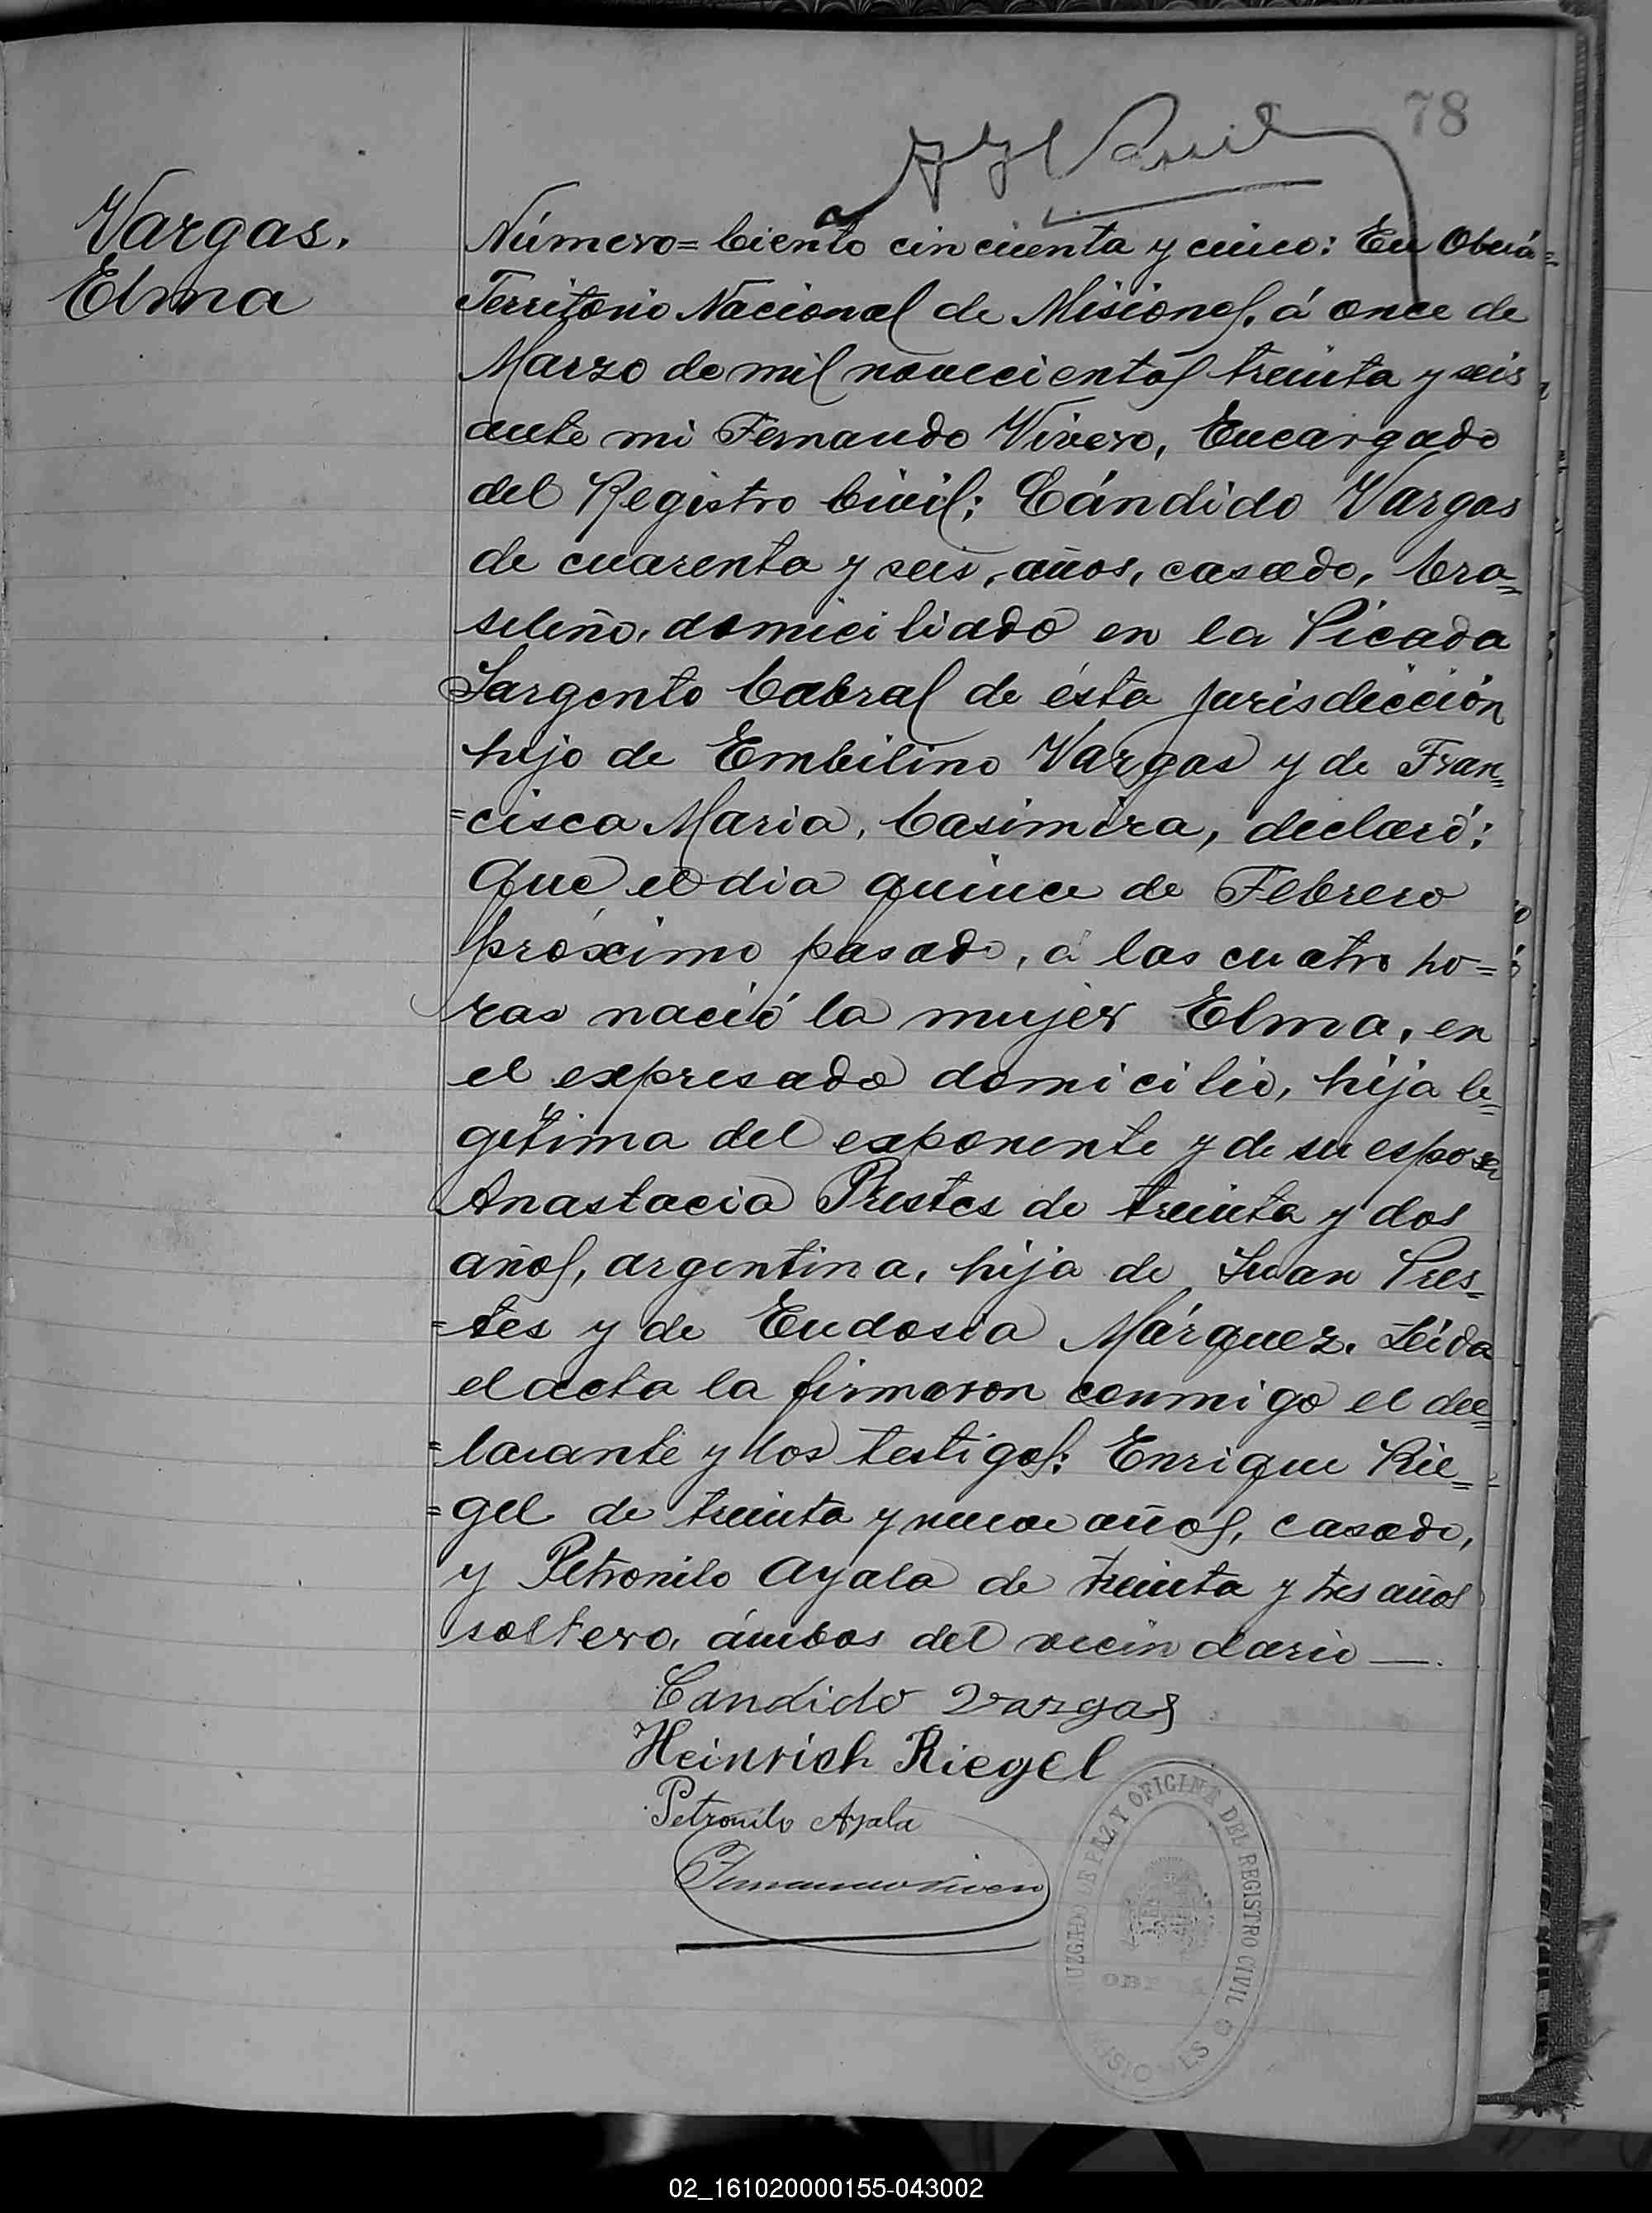 78
Vargas.
Elma
Número= Ciento cincuenta y cinco: En Oberá=
Territorio Nacional de Misiones, á once de
Marzo de mil novecientos treinta y seis
ante mi Fernando Vivero, Encargado
del Registro Civil; Cándido Vargas
de cuarenta y seis, años, casado, bra=
sileño, domiciliado en la Picada
Sargento Cabral de ésta jurisdicción
hijo de Embilino Vargas y de Fran=
=cisca Maria, Casimira, declaró:
Que el dia quince de Febrero
próximo pasado, á las cuatro ho=
ras nació la mujer Elma, en
el expresado domicilio, hija le=
gítima del exponente y de su esposa
Anastacia Prestes de treinta y dos
años, argentina, hija de Juan Pres=
=tes y de Eudosia Márquez. Leída
el acta la firmaron conmigo el dec=
=larante y los testigos: Enrique Rie=
=gel de treinta y nueve años, casado,
y Petronilo Ayala de treinta y tres años
soltero, ámbos del vecindario —.
Candido Vargas
Heinrich Riegel
Petronilo Ayala
Fernando Vivero
JUZGADO DE PAZ Y OFICINA DEL REGISTRO CIVIL
OBERÁ
MISIONES
02_161020000155-043002